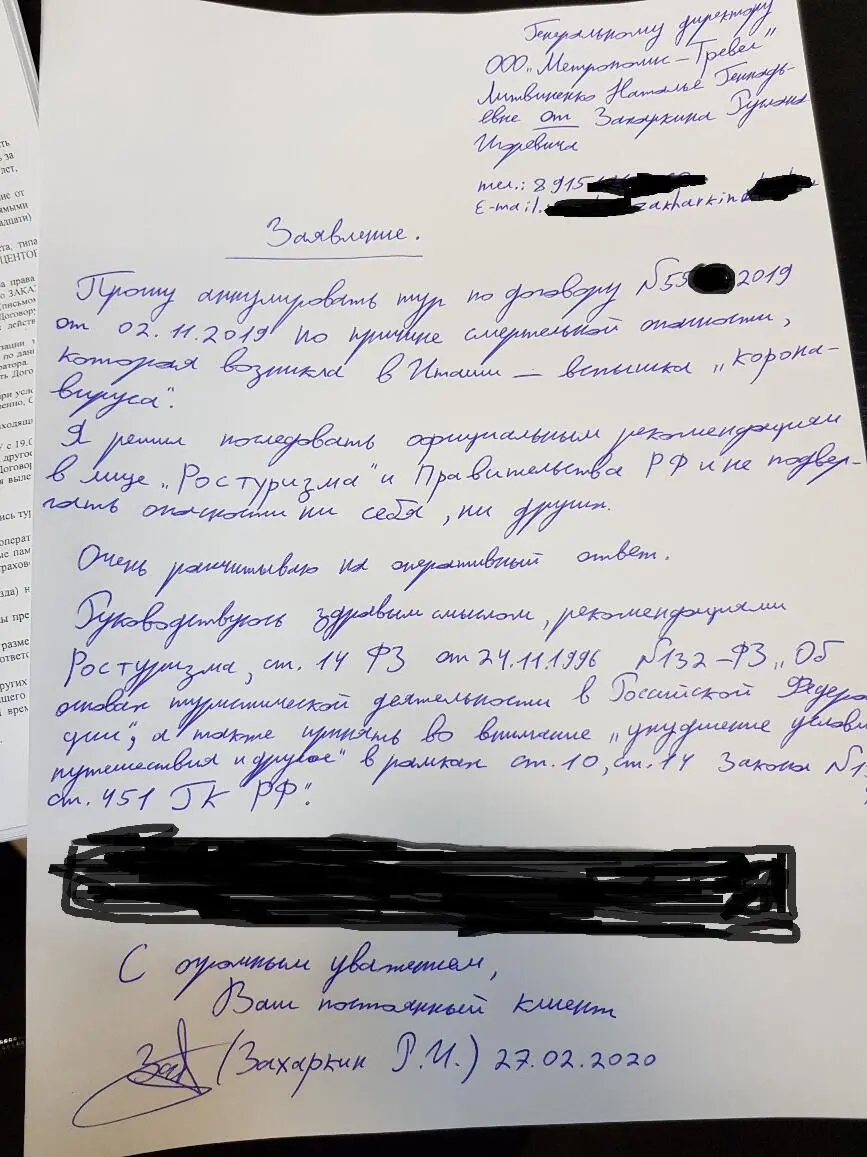 Генеральному директору
ООО "Метрополис-Тревел"
Литвиненко Наталье Геннадь-
евне от Захаркина Руслана
Игоревича
тел.: 8915
E-mail. zakharkin
Заявление.
Прошу аннулировать тур по договору №55 2019
от 02.11.2019 по причине смертельной опасности,
которая возникла в Италии – вспышка "корона-
вируса".
Я решил последовать официальным рекомендациям
в лице "Ростуризма" и Правительства РФ и не подвер-
гать опасности ни себя, ни других.
Очень рассчитываю на оперативный ответ.
Руководствуюсь здравым смыслом, рекомендациями
Ростуризма, ст. 14 ФЗ от 24.11.1996 №132-ФЗ "Об
основах туристической деятельности в Российской Федера
ции", а также принять во внимание "ухудшение услови
путешествия и другое" в рамках ст. 10, ст. 14 Закона №1
ст. 451 ГК РФ".
С огромным уважением,
Ваш постоянный клиент
(Захаркин Р.И.) 27.02.2020